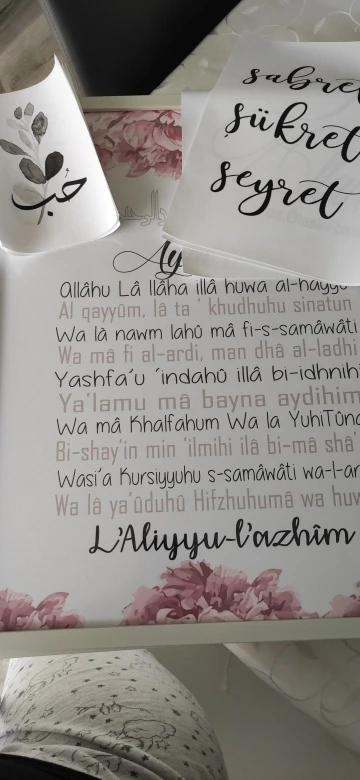 sabret
şükret
seyret
حُب
Ay
Allâhu Lâ Ilâha illâ huwa al-hayyu
Al qayyûm, lâ ta ' khudhuhu sinatun
Wa lâ nawm lahû mâ fi-s-samâwâti
Wa mâ fi al-ardi, man dhâ al-ladhi
Yashfa'u 'indahû illâ bi-idhnihi
Ya'lamu mâ bayna aydihim
Wa mâ Khalfahum Wa la YuhiTûna
Bi-shay'in min 'ilmihi ilâ bi-mâ shâ'
Wasi'a Kursiyyuhu s-samâwâti wa-l-ar
Wa lâ ya'ûduhû Hifzhuhumâ wa huw
L'Aliyyu-l'azhîm